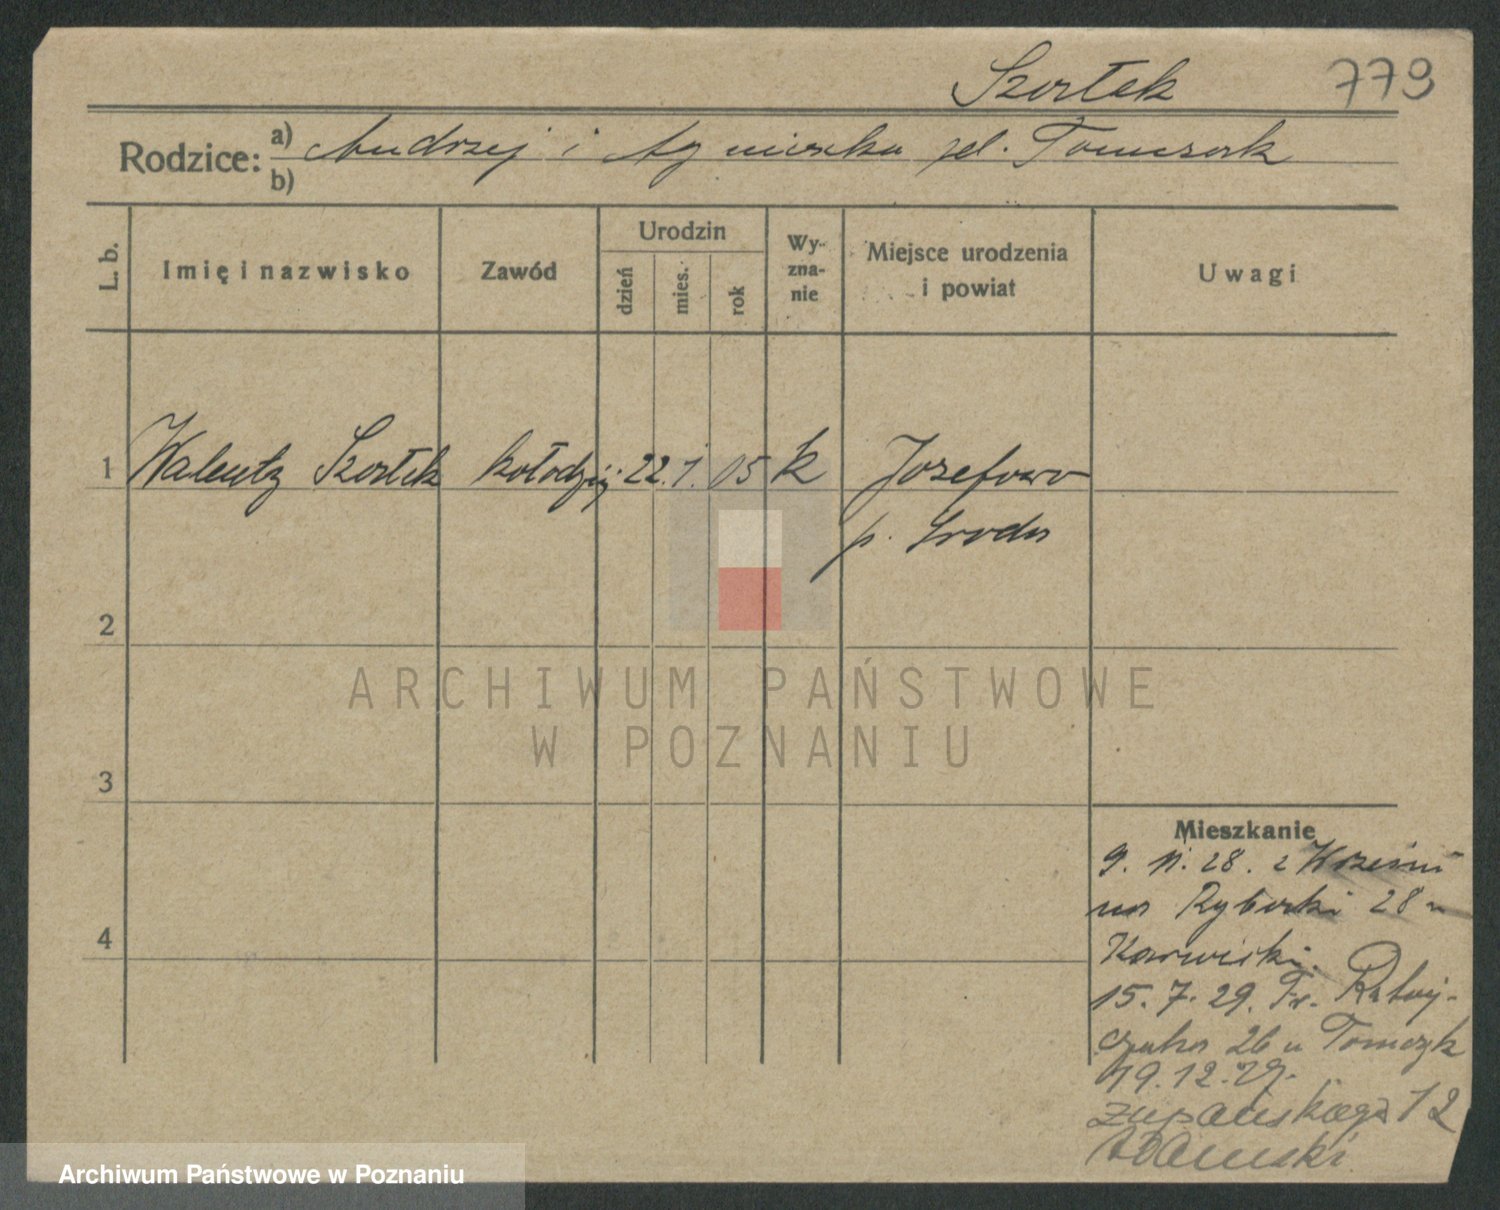 Szostek 779
Rodzice: a) Andrzej i Agnieszka zd. Tomczak
b)
L. b. Imię i nazwisko Zawód Urodzin Wy-zna-nie Miejsce urodzenia i powiat Uwagi
dzień mies. rok
1 Walenty Szostek kołodziej 22. 1. 05 k Józefowo
p. Sroda
2
ARCHIWUM PAŃSTWOWE
W POZNANIU
3
Mieszkanie
9. 11. 28. z Wrześni
na Rybaki 28 u
4
Karwicki.
15. 7. 29. Fr. Rataj-
czaka 26 u Tomczyk
19. 12. 29.
Zupańskiego 12
Adamski
Archiwum Państwowe w Poznaniu